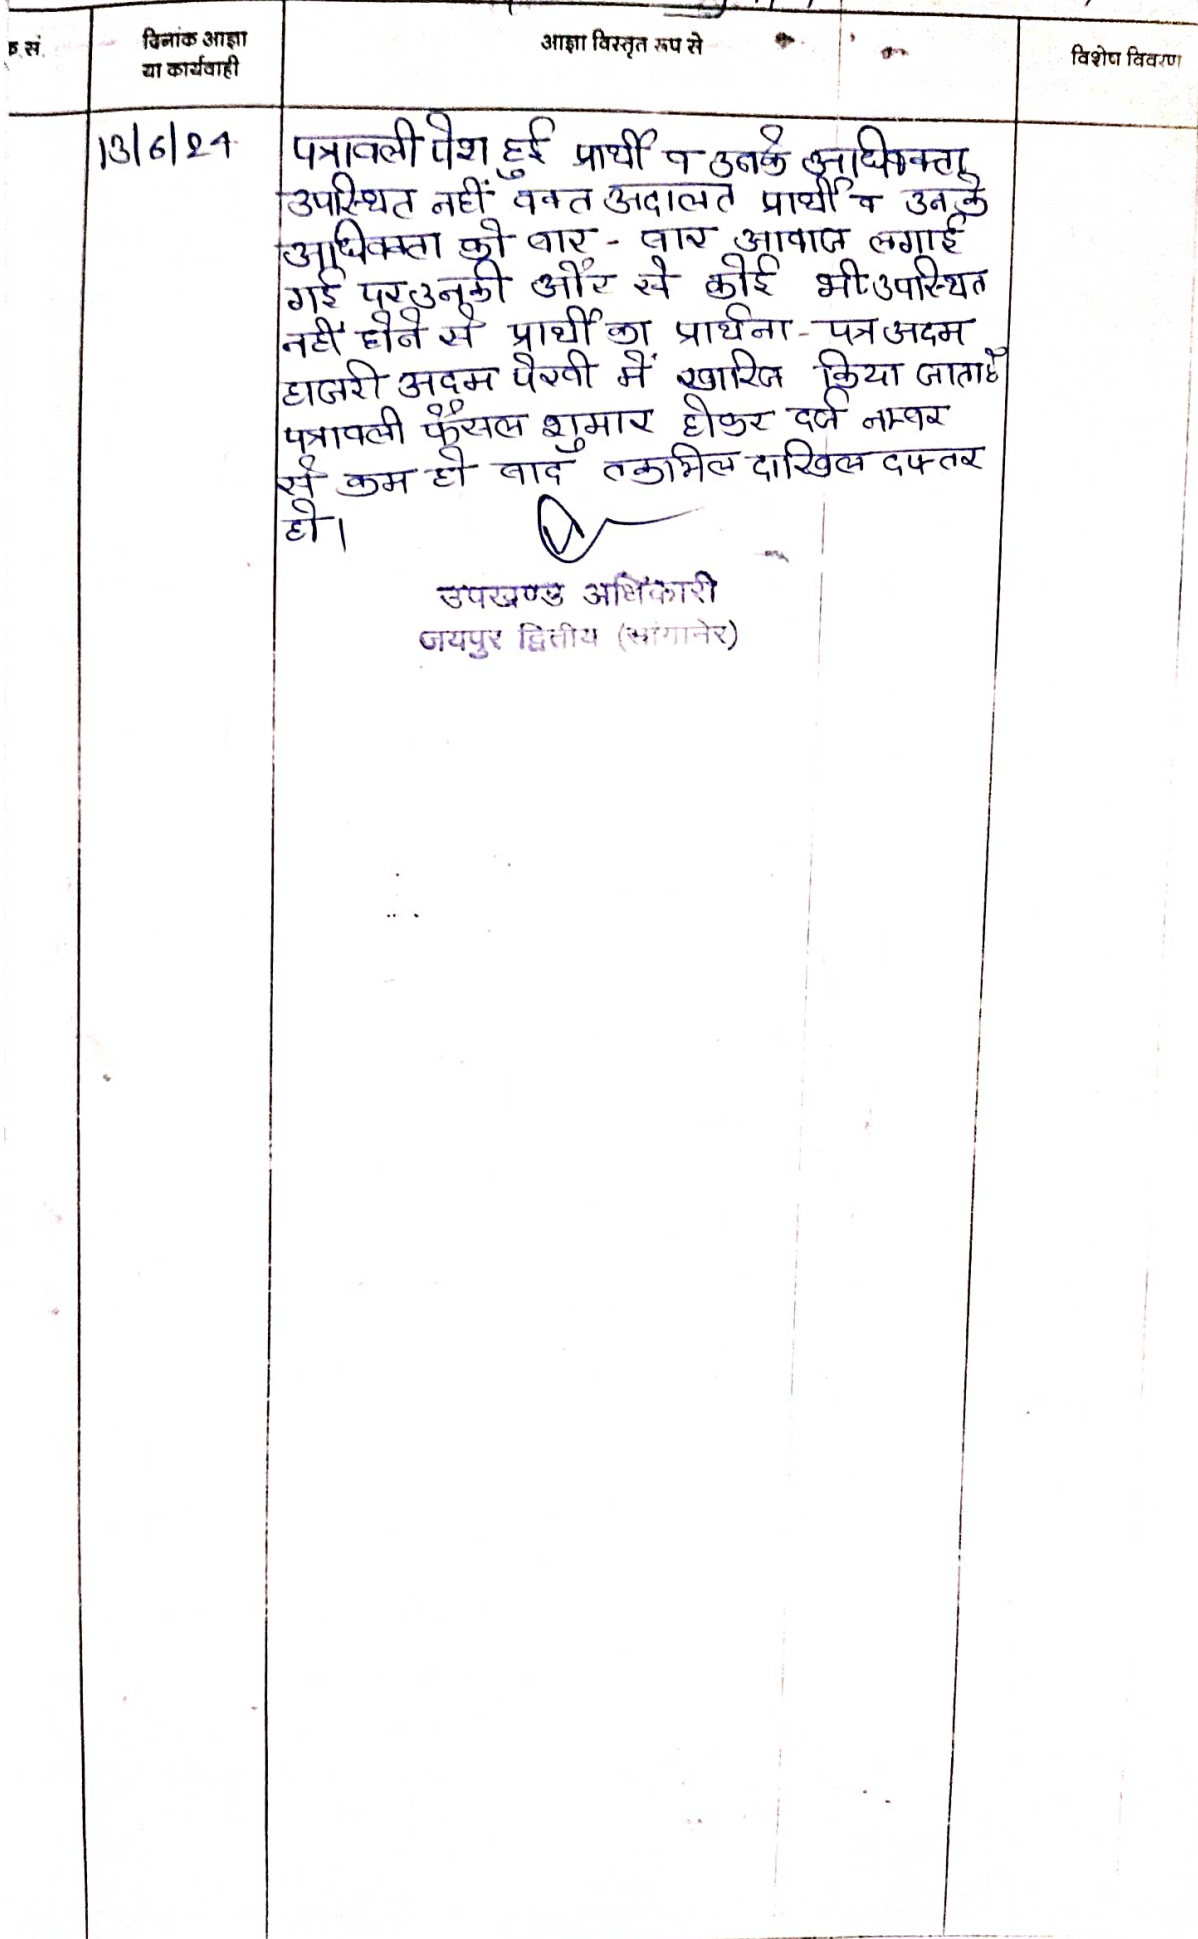 क्र.सं.
दिनांक आज्ञा
या कार्यवाही
आज्ञा विस्तृत रूप से
विशेष विवरण
13/6/24
पत्रावली पेश हुई प्रार्थी व उनके अधिवक्ता
उपस्थित नहीं वक्त अदालत प्रार्थी व उनके
अधिवक्ता को बार - बार आवाज लगाई
गई पर उनकी ओर से कोई भी उपस्थित
नहीं होने से प्रार्थी का प्रार्थना - पत्र अदम
हाजरी अदम पैरवी में खारिज किया जाता है
पत्रावली फैसल शुमार होकर दर्ज नम्बर
से कम हो बाद तकामिल दाखिल दफ्तर
हो।
उपखण्ड अधिकारी
जयपुर द्वितीय (सांगानेर)